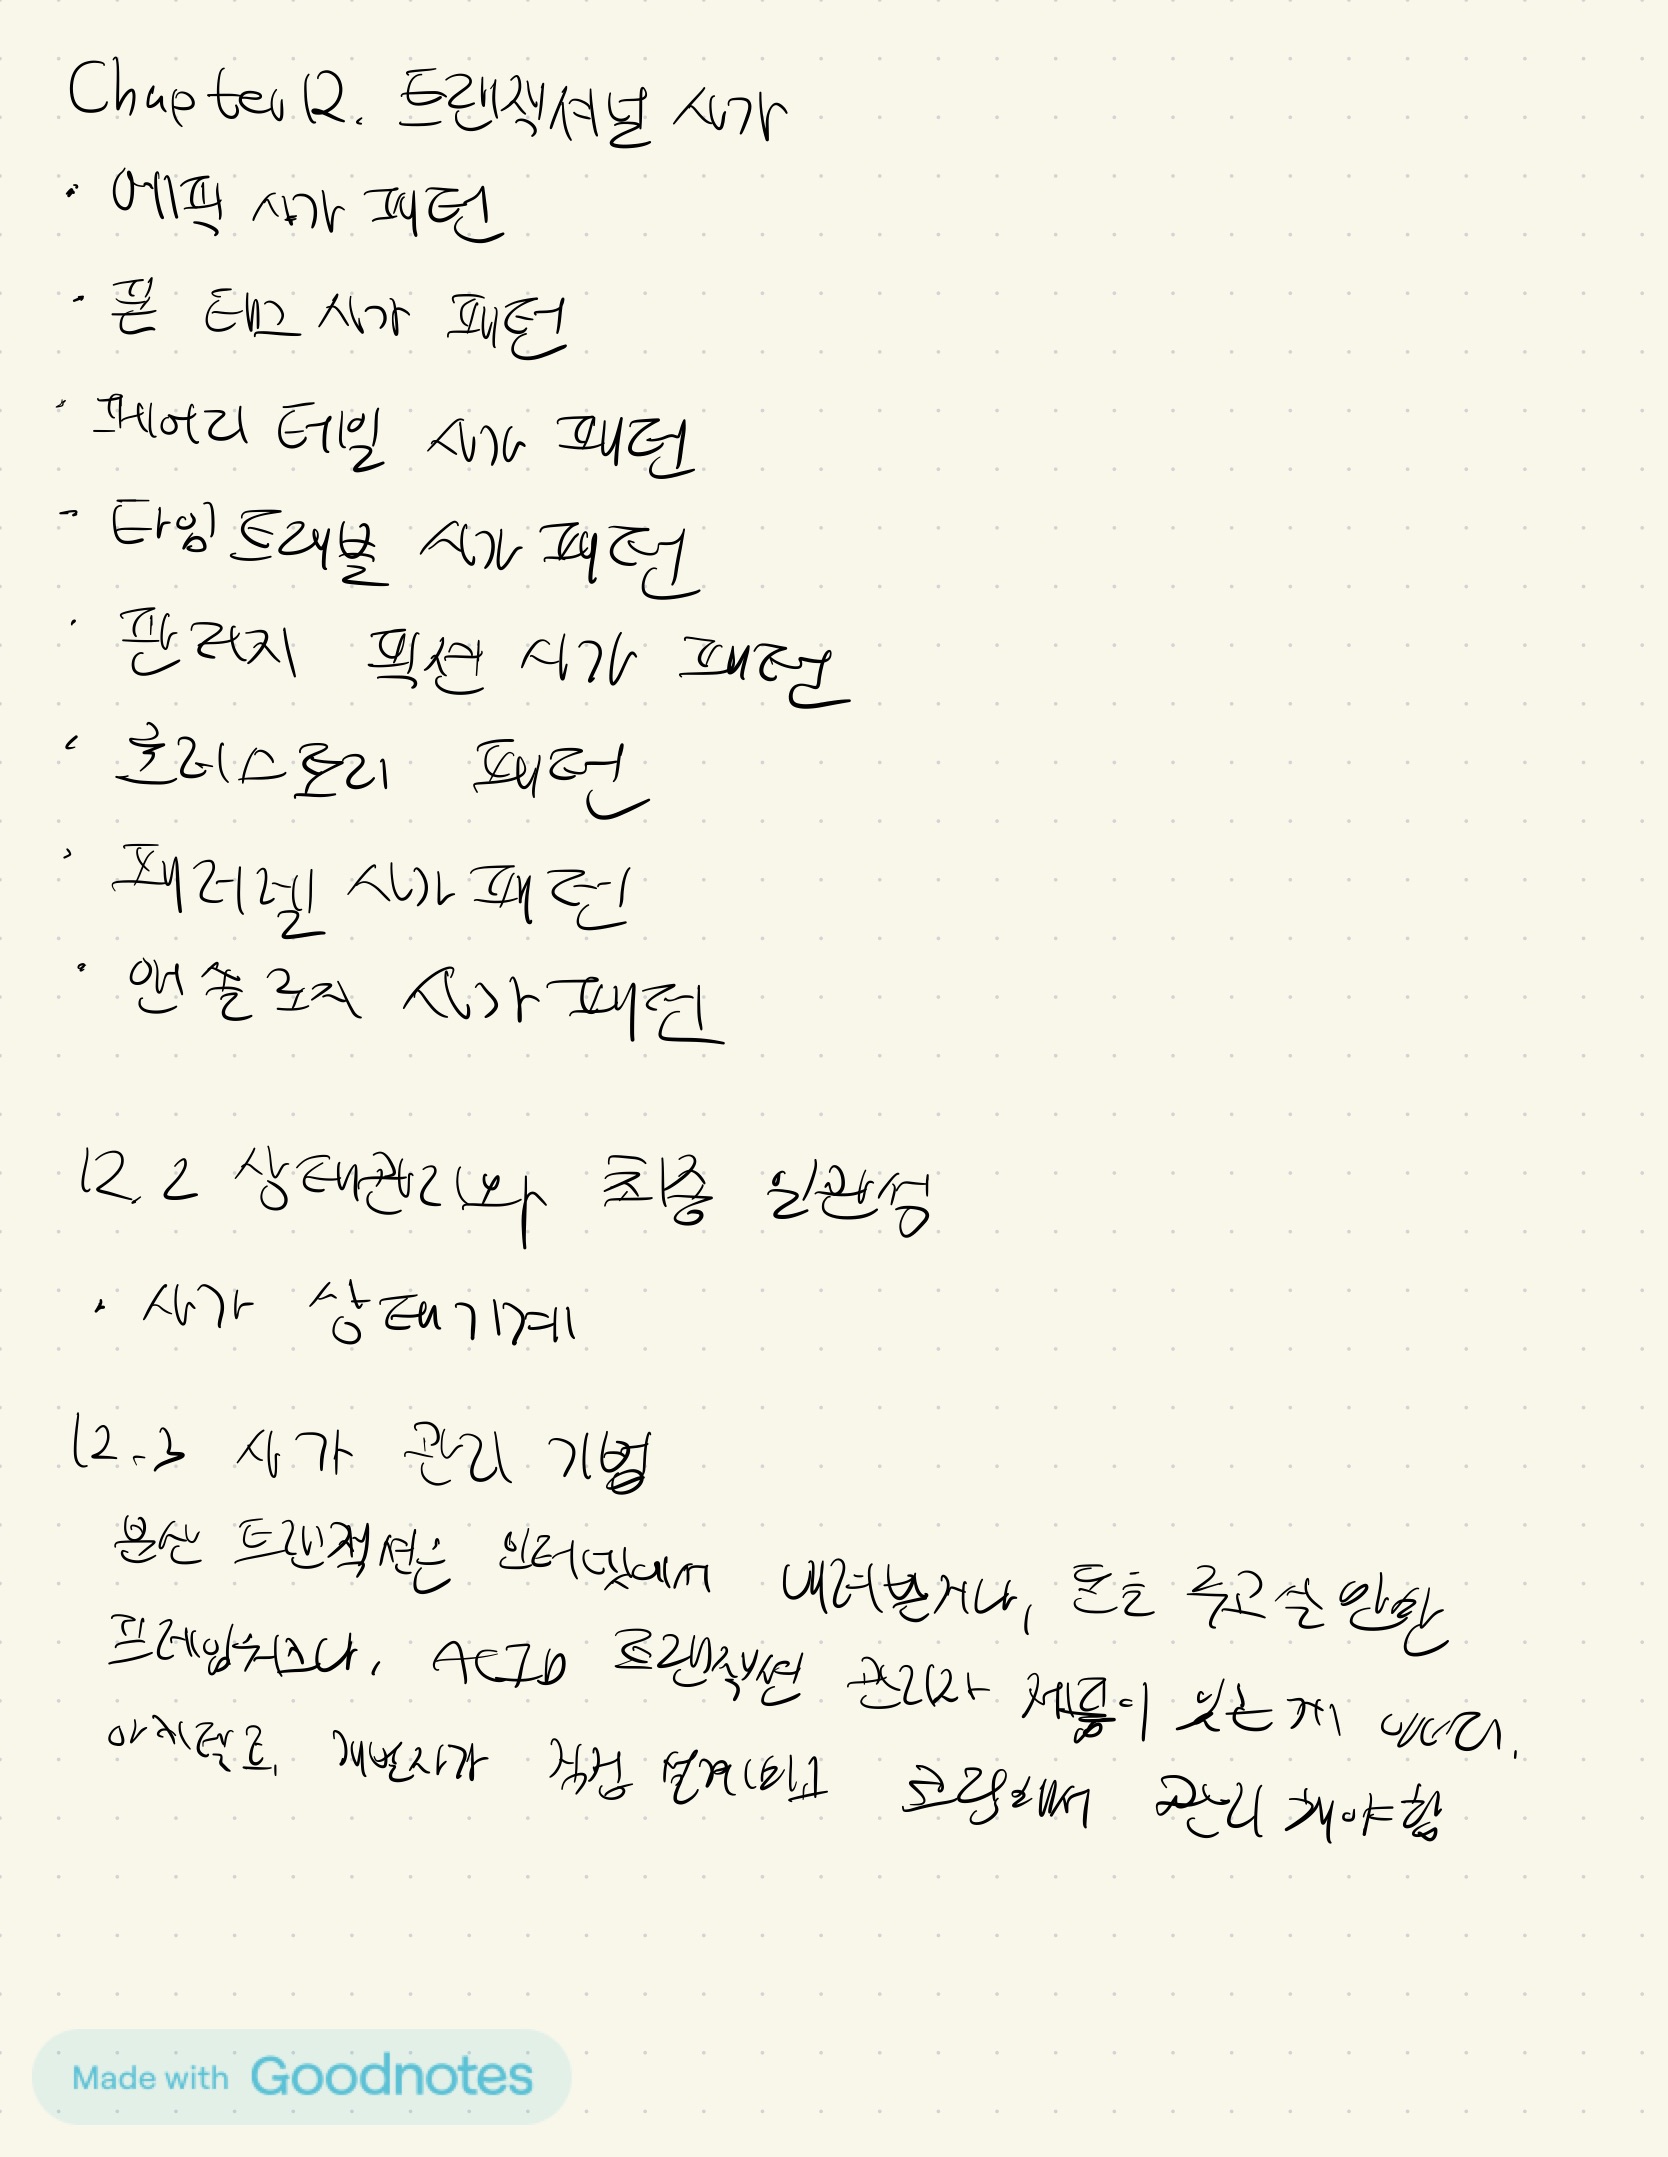 Chapter 12. 트랜잭셔널 사가
· 에픽 사가 패턴
· 폰 태그 사가 패턴
· 페어리 테일 사가 패턴
- 타임 트래블 사가 패턴
· 판러지 픽션 사가 패턴
· 호러스토리 패턴
· 패러렐 사가 패턴
· 앤솔로지 사가 패턴
12.2 상태관리와 최종 일관성
· 사가 상태기계
12.3 사가 관리 기법
분산 트랜잭션은 인터넷에서 내려받거나, 돈을 주고 살 만한
프레임워크나, ACID 트랜잭션 관리자 제품이 있는게 아니다.
개발자가 직접 설계하고 코딩해서 관리해야함
Made with Goodnotes